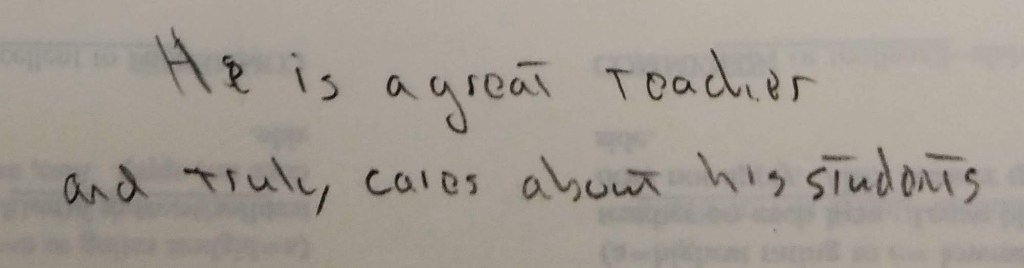 He is a great teacher
and truly cares about his students